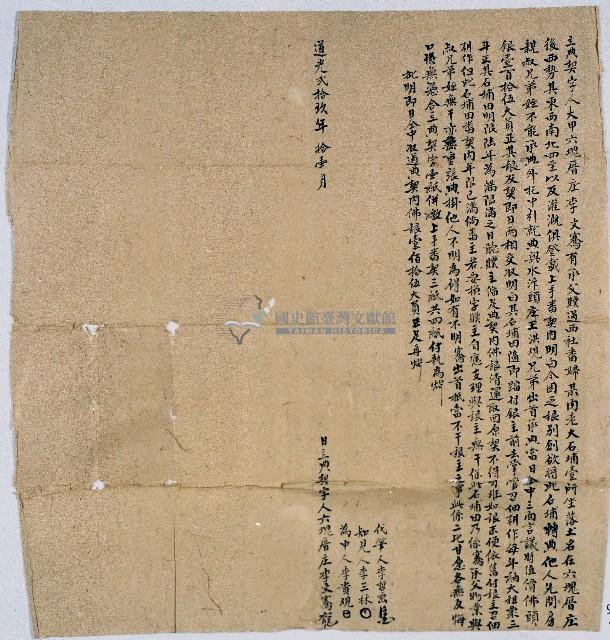 立典契字人大甲六塊厝庄李文騫有承父贌過西社番婦某肉老大石埔壹所坐落土名在六塊厝庄
後西勢其東西南北四至以及灌溉俱登載上手番契內明白今因乏銀別創欲將此石埔轉典他人先問房
親叔兄弟姪不能承典外托中引就典與水汴頭庄王洪規兄弟出首承典當日仝中三面言議時值價佛頭
銀壹百拾伍大員正其銀及契即日兩相交收明白其石埔田隨即踏付銀主前去掌管召佃耕作每年納大租粟三
斗正其石埔田明限陸年為滿限滿之日聽贌主備足典契內佛銀清還取回原契不得刁难如銀不便依舊付銀主召佃
耕作但此石埔田番契內年限已滿倘番主若要換字贌主自應支理與銀主無干保此石埔田乃係騫承父物業與
叔兄弟姪無干亦無重張典掛他人不明為碍如有不明騫出首抵當不干銀主之事此係二比甘愿各無反悔
口恐無憑今立典契字壹紙併繳上手番契三紙共四紙付执為炤
批明即日仝中收過典契內佛銀壹佰拾伍大員正足再炤
道光弍拾玖年 拾壹月
代筆人李
知見人李三林
為中人李貴規
日立典契字人六塊厝庄李文騫
國史館臺灣文獻館
TAIWAN HISTORICA